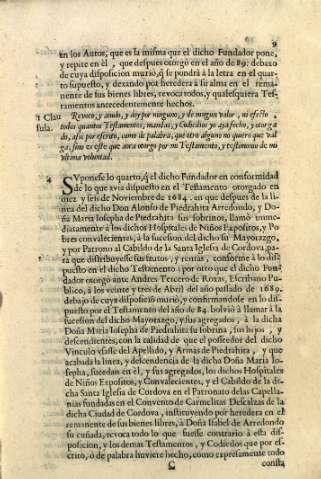 9
en los Autos, que es la misma que el dicho Fundador pone,
y repite en èl, que despues otorgò en el año de 89. debaxo
de cuya disposicion murio, q̃ se pondrà à la letra en el quar-
to supuesto, y dexando por heredera à su alma en el rema-
nente de sus bienes libres, revocò todos, y qualesquiera Tes-
tamentos antecedentemente hechos.
1 Clau
sula.
Revoco, y anulo, y doy por ninguno, y de ningun valor, ni efecto
todos quantos Testamentos, mandas, y Codicilos yo aya fecho, y otorga-
do, assi por escrito, como de palabra, que otro alguno no quiero que val-
ga, sino es este que aora otorgo por mi Testamento, y testimonio de mi
vltima voluntad.
4
SVponese lo quarto, q̃ el dicho Fundador en conformidad
de lo que avia dispuesto en el Testamento otorgado en
diez y seis de Noviembre de 1684. en que despues de la li-
nea del dicho Don Alonso de Piedrahita Arredondo, y Do-
ña Maria Josepha de Piedrahita sus sobrinos, llamò inme-
diatamente à los dichos Hospitales de Niños Expositos, y Po-
bres convalecientes, à la sucession del dicho su Mayorazgo,
y por Patrono al Cabildo de la Santa Iglesia de Cordova, pa-
ra que distribuyesse sus frutos, y rentas, conforme à lo dis-
puesto en el dicho Testamento; por otro que el dicho Fun-
dador otorgò ante Andres Tercero de Roxas, Escribano Pu-
blico, à los veinte y tres de Abril del año passado de 1689.
debajo de cuya disposició muriò, y confirmandose en lo dis-
puesto por el Testamento del año de 84. bolviò à llamar à la
sucession del dicho Mayorazgo, y sus agregados, à la dicha
Doña Maria Josepha de Piedrahita su sobrina, sus hijos, y
descendientes, con la calidad de que el posseedor del dicho
Vinculo vsasse del Apellido, y Armas de Piedrahita, y que
acabada la linea, y descendencia de la dicha Doña Maria Jo-
sepha, sucedan en èl, y sus agregados, los dichos Hospitales
de Niños Expositos, y Convalecientes, y el Cabildo de la di-
cha Santa Iglesia de Cordova en el Patronato de las Capella-
nias fundadas en el Convento de Carmelitas Descalzas de la
dicha Ciudad de Cordova, instituyendo por heredera en el
remanente de sus bienes libres, à Doña Isabel de Arredondo
su cuñada, revoca todo lo que fuesse contrario à esta dis-
posicion, y los demas Testamentos, y Codicilos que por es-
crito, ò de palabra huviere hecho, como expressamente todo
C
consta